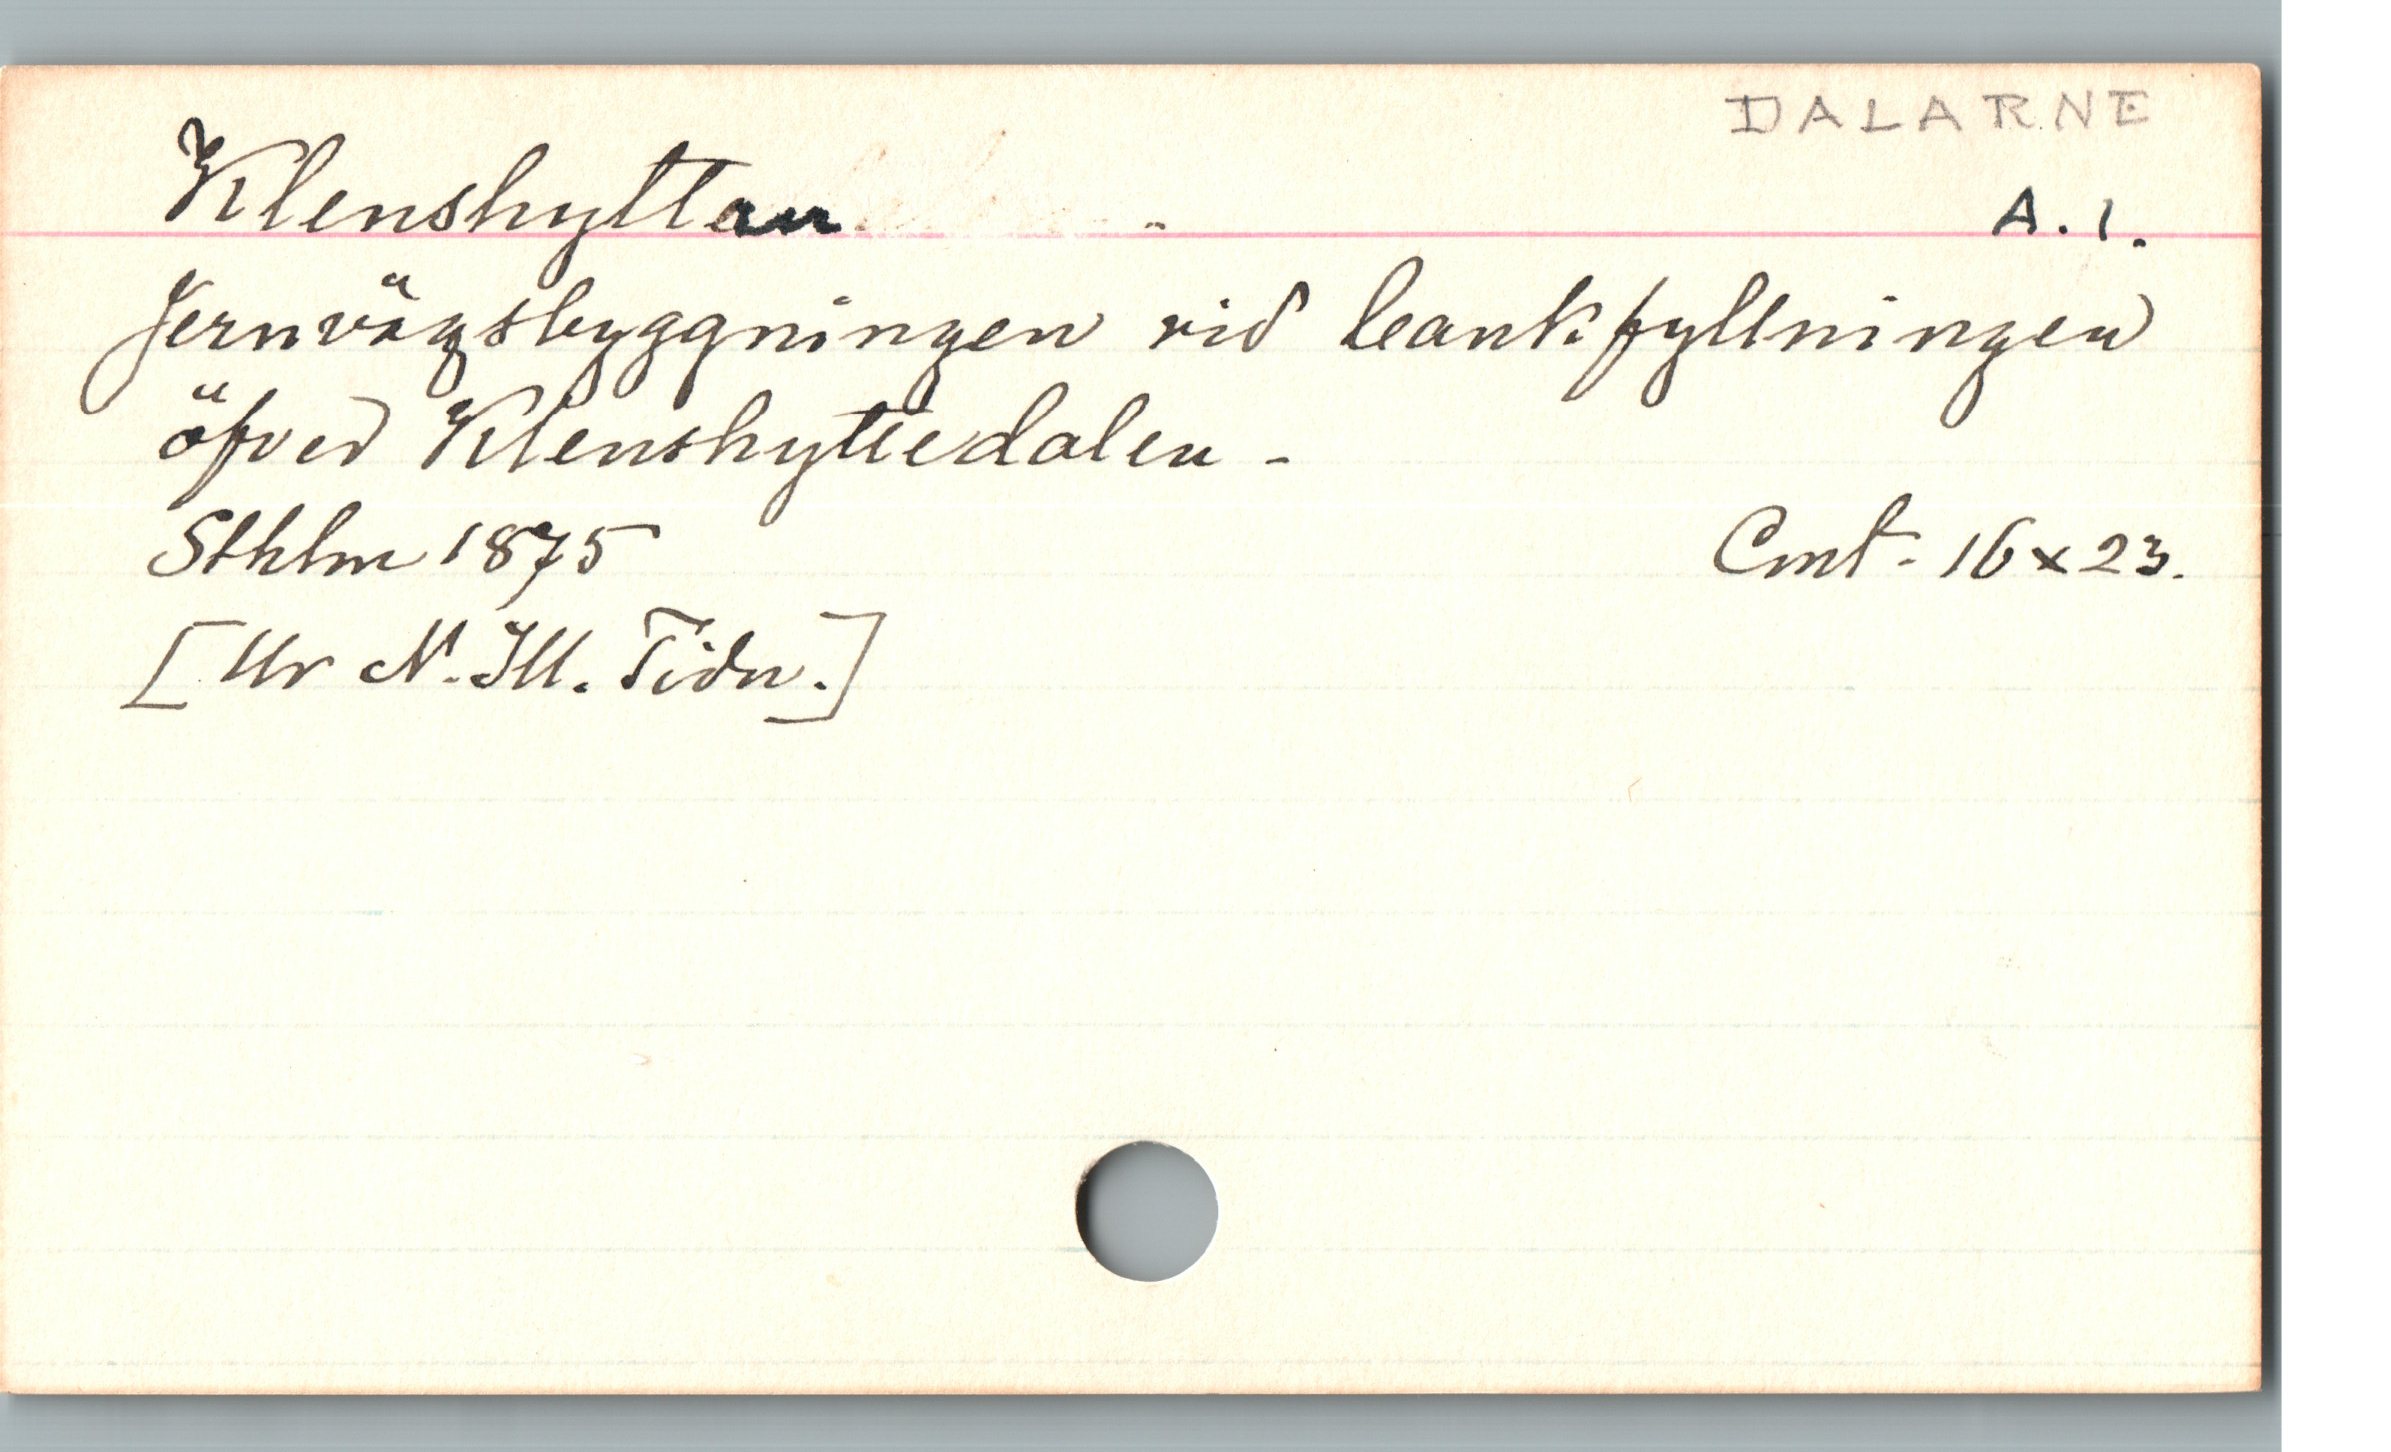 DALARNE
Klenshyttan. A.1.
Jernvägsbyggningen vid bankfyllningen
öfver Klenshyttedalen.
Sthlm 1875 Cmt. 16x23.
[Ur N. Ill. Tidn.]